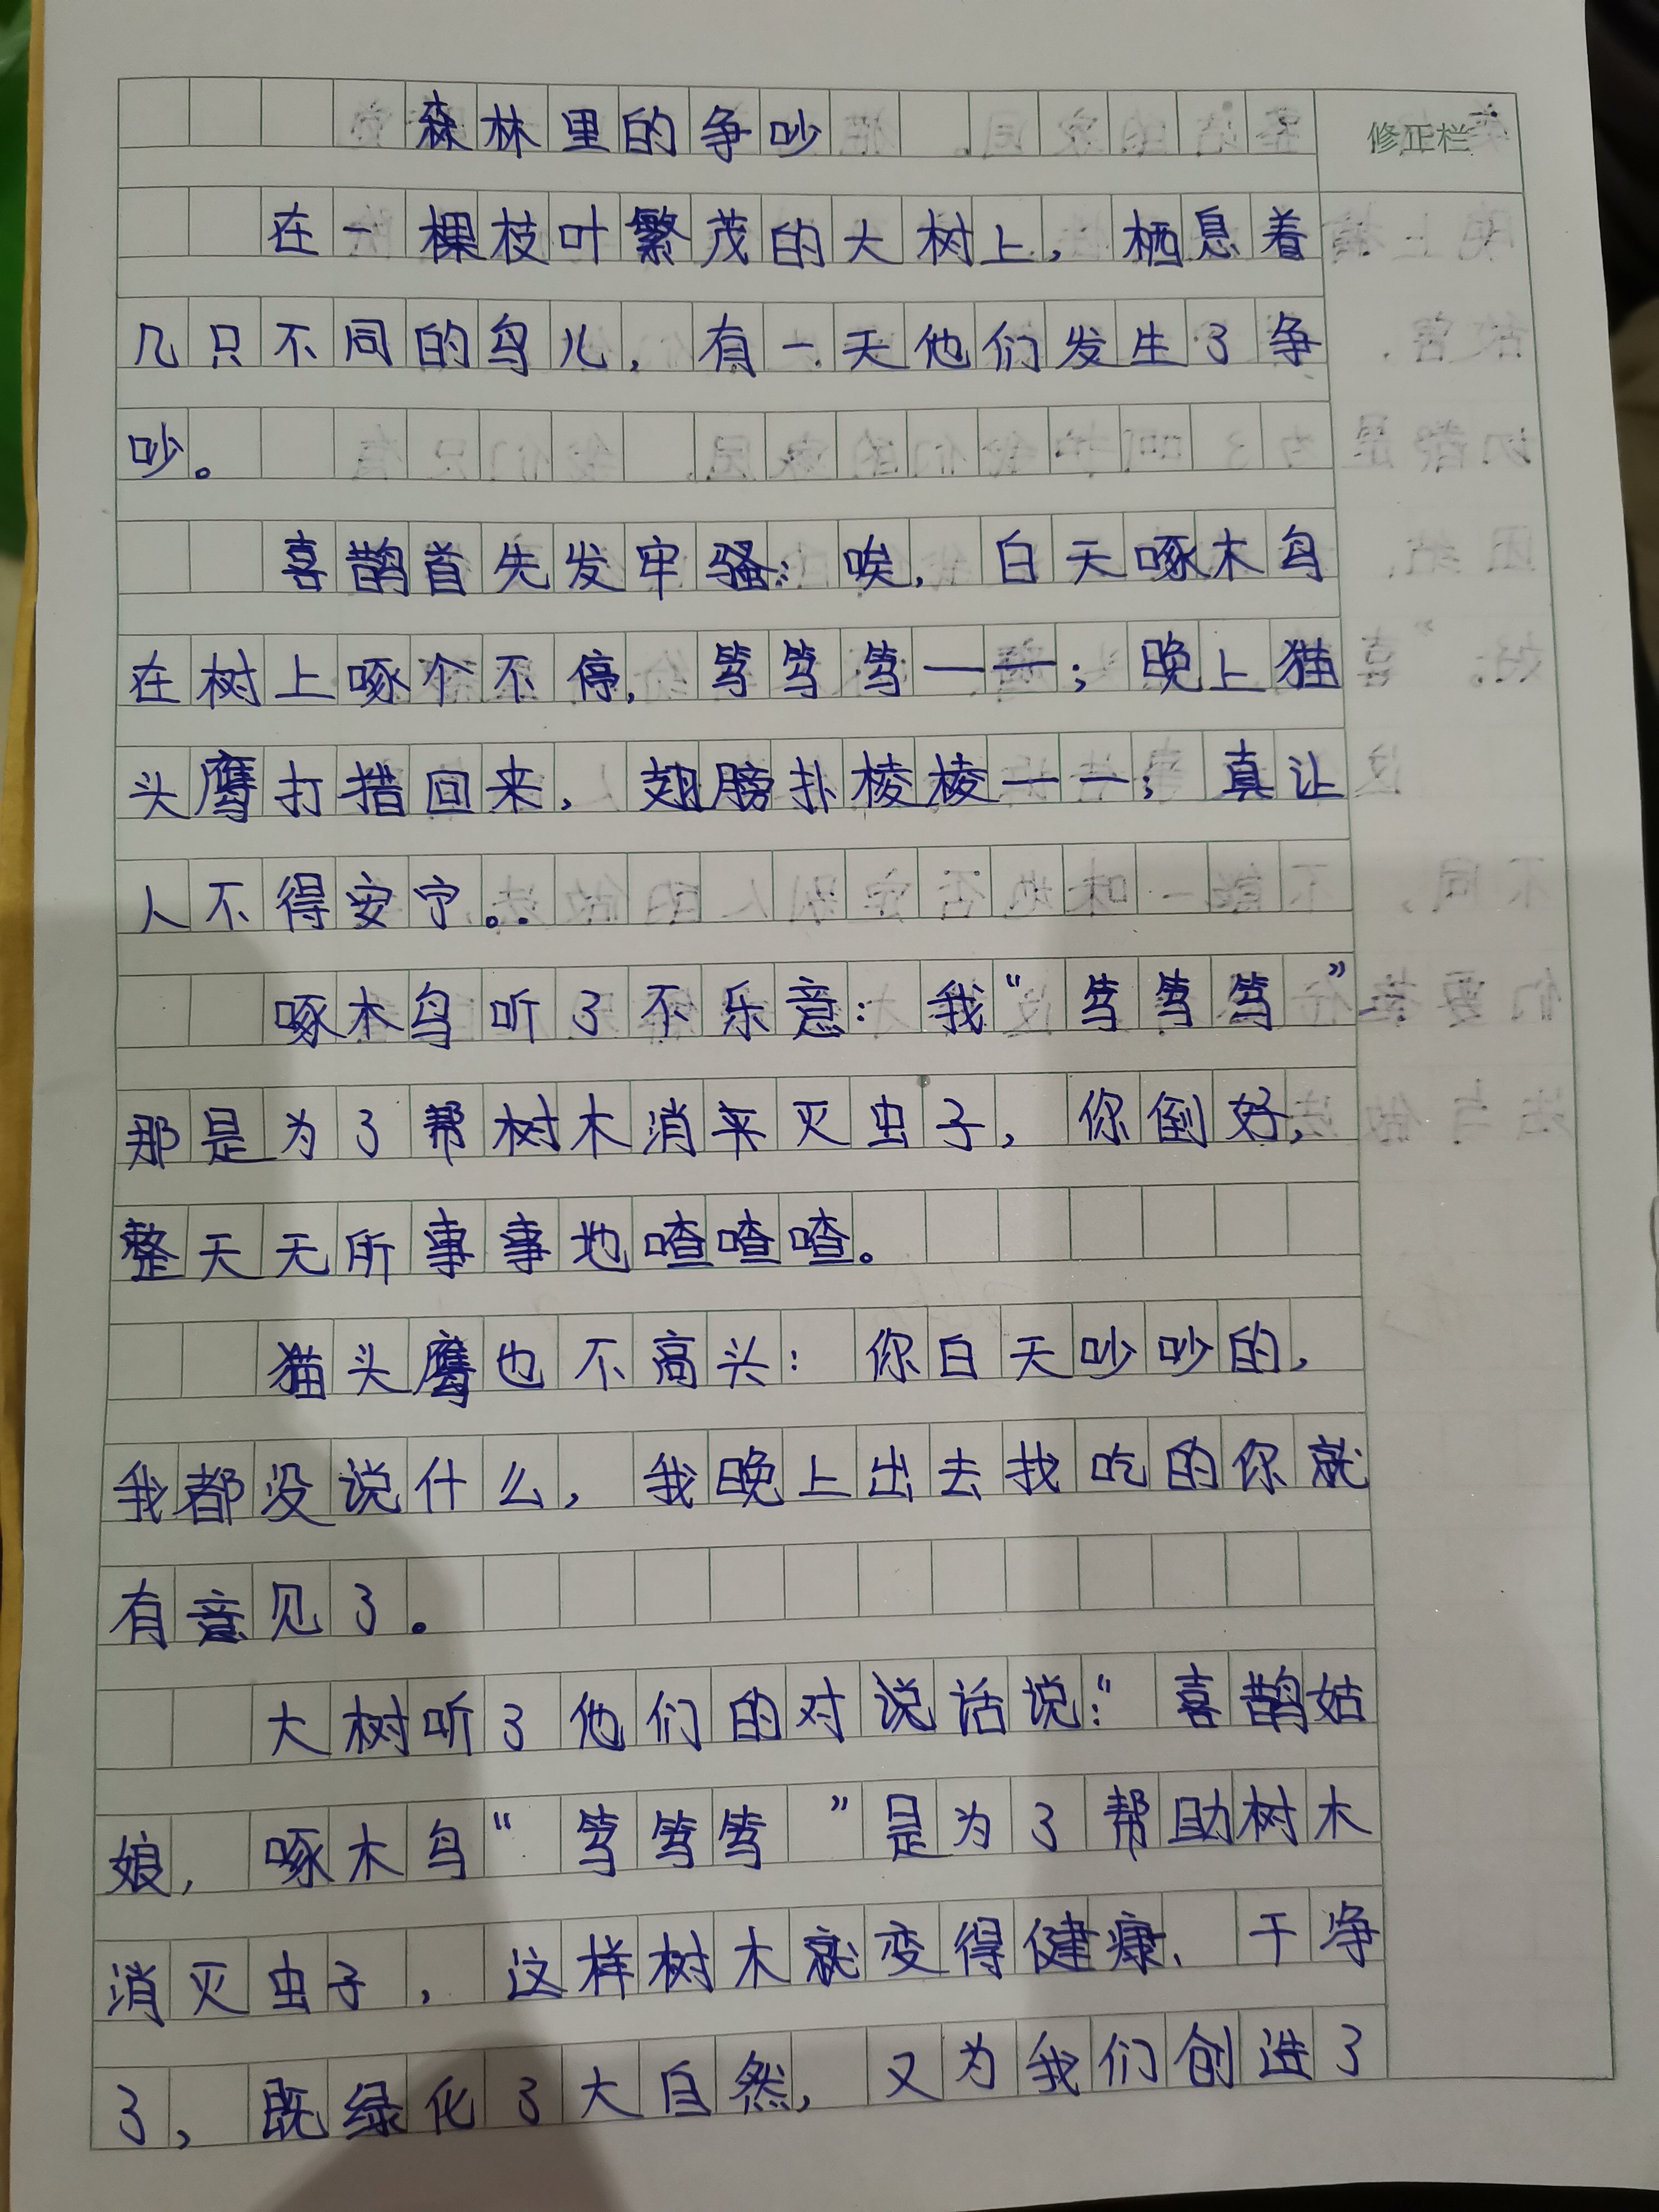 森林里的争吵
修正栏
在一棵枝叶繁茂的大树上，栖息着
几只不同的鸟儿，有一天他们发生了争
吵。
喜鹊首先发牢骚：唉，白天啄木鸟
在树上啄个不停，笃笃笃——；晚上猫
头鹰打猎回来，翅膀扑棱棱——；真让
人不得安宁。
啄木鸟听了不乐意：我“笃笃笃”
那是为了帮树木消来灭虫子，你倒好，
整天无所事事地喳喳喳。
猫头鹰也不高头：你白天吵吵的，
我都没说什么，我晚上出去找吃的你就
有意见了。
大树听了他们的对说话说：“喜鹊姑
娘，啄木鸟“笃笃笃”是为了帮助树木
消灭虫子，这样树木就变得健康、干净
了，既绿化了大自然，又为我们创造了